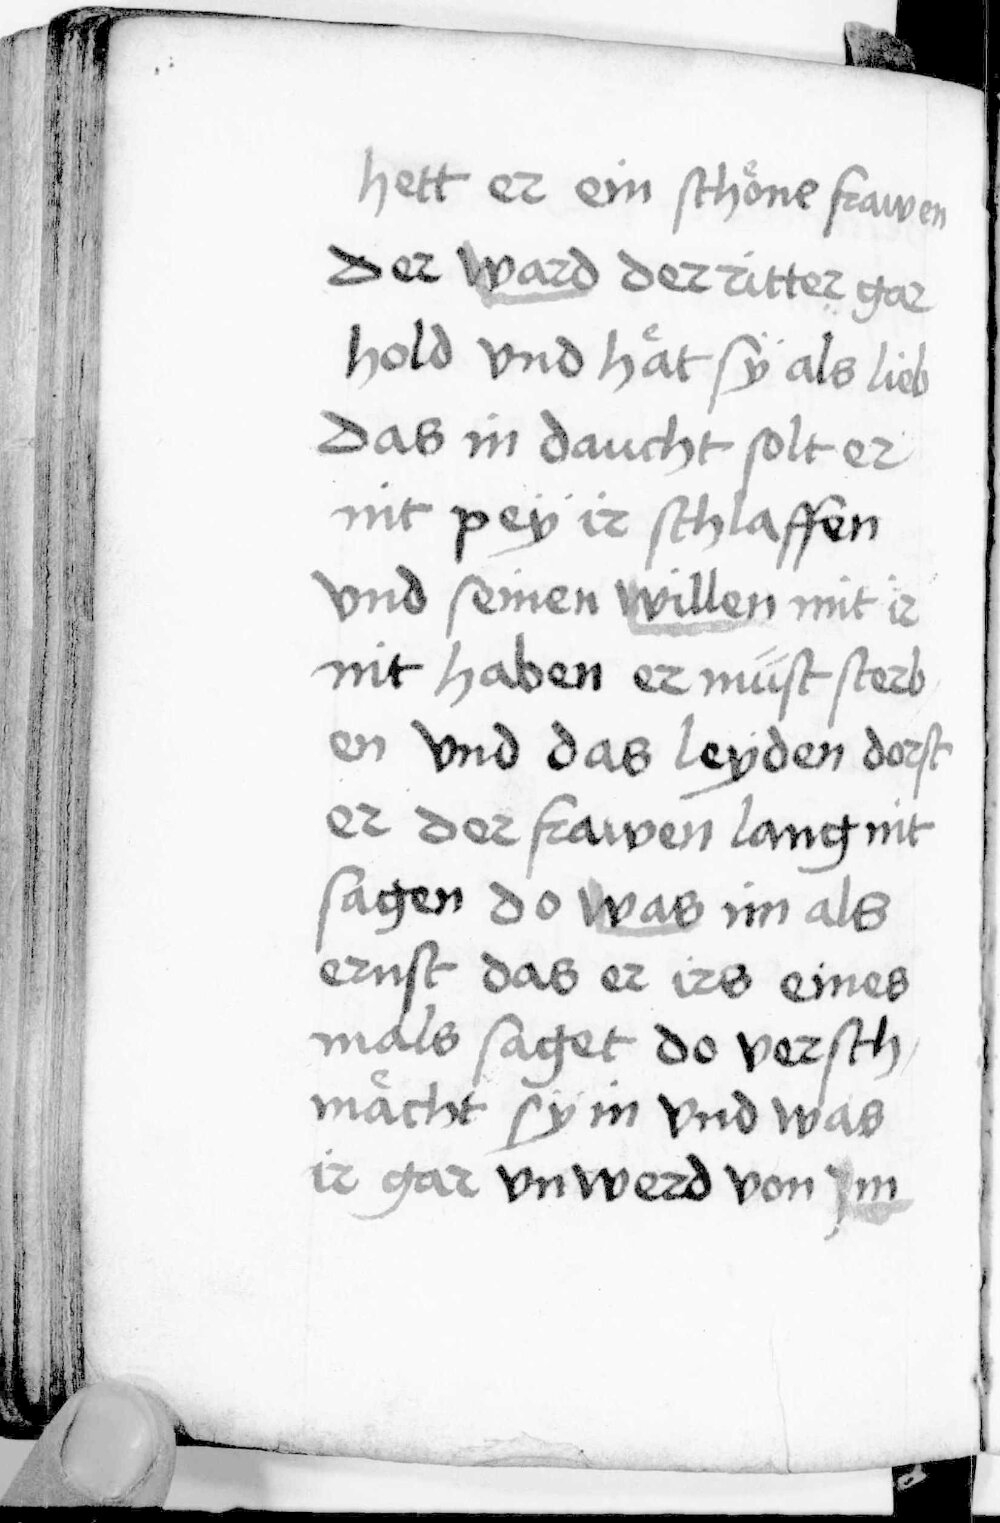 hett er ein schoͤne frawen
der ward der ritter gar
hold vnd haͤt sÿ als lieb
das in daucht solt er
nit peÿ ir schlaffen
vnd seinen willen mit ir
nit haben er müst sterb
en vnd das leÿden dorst
er der frawen lang nit
sagen do was im als
ernst das er irs eines
mals saget do versch
maͤcht sÿ in vnd was
ir gar vnwerd von jm